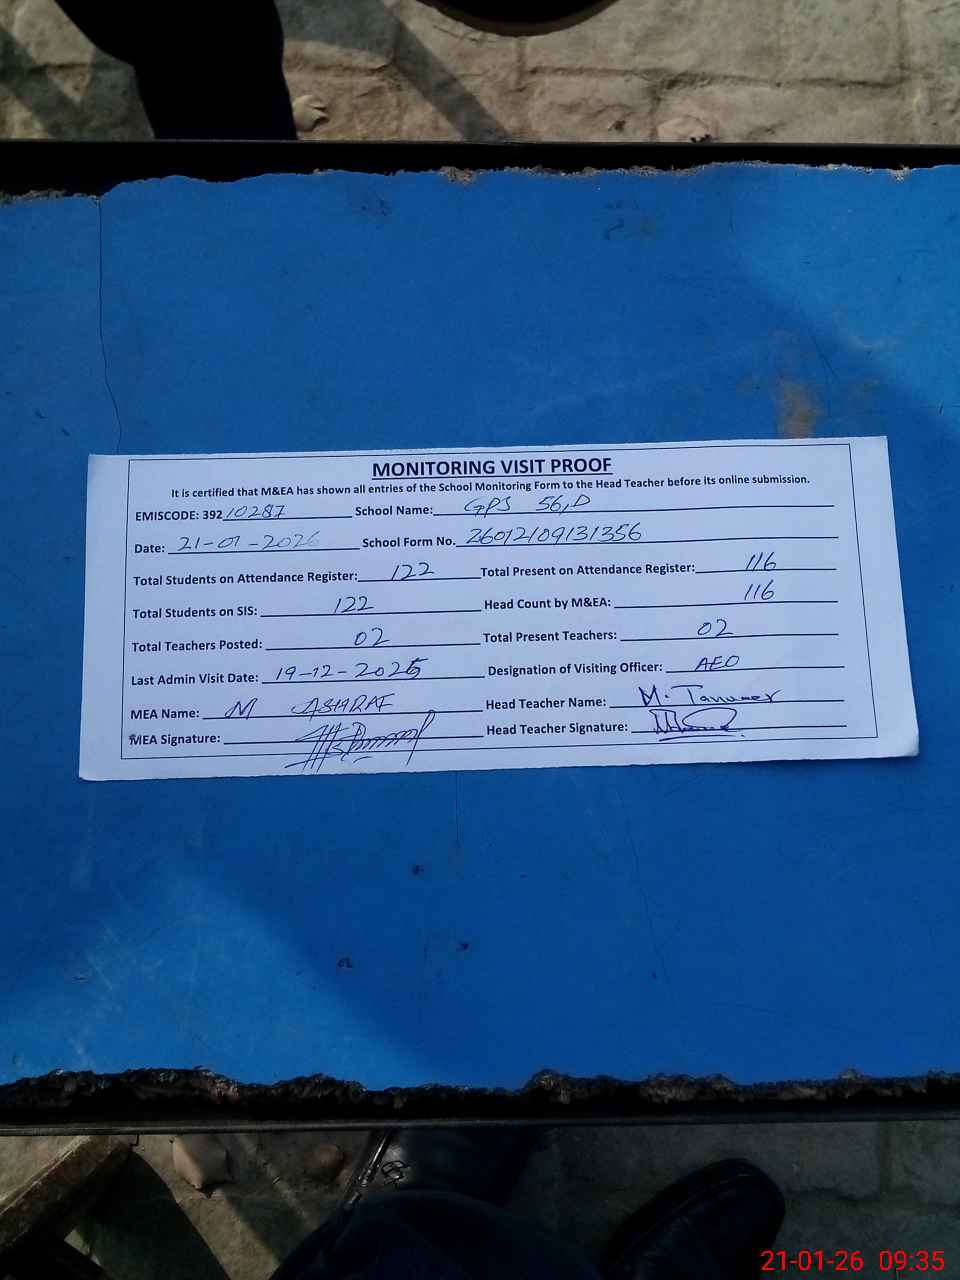 MONITORING VISIT PROOF
It is certified that M&EA has shown all entries of the School Monitoring Form to the Head Teacher before its online submission.
EMISCODE: 39210287 School Name: GPS 56,D
Date: 21-01-2026 School Form No. 26012109131356
Total Students on Attendance Register: 122 Total Present on Attendance Register: 116
Total Students on SIS: 122 Head Count by M&EA: 116
Total Teachers Posted: 02 Total Present Teachers: 02
Last Admin Visit Date: 19-12-2025 Designation of Visiting Officer: AEO
MEA Name: M ASHRAF Head Teacher Name: M. Tanveer
MEA Signature: Head Teacher Signature:
21-01-26 09:35